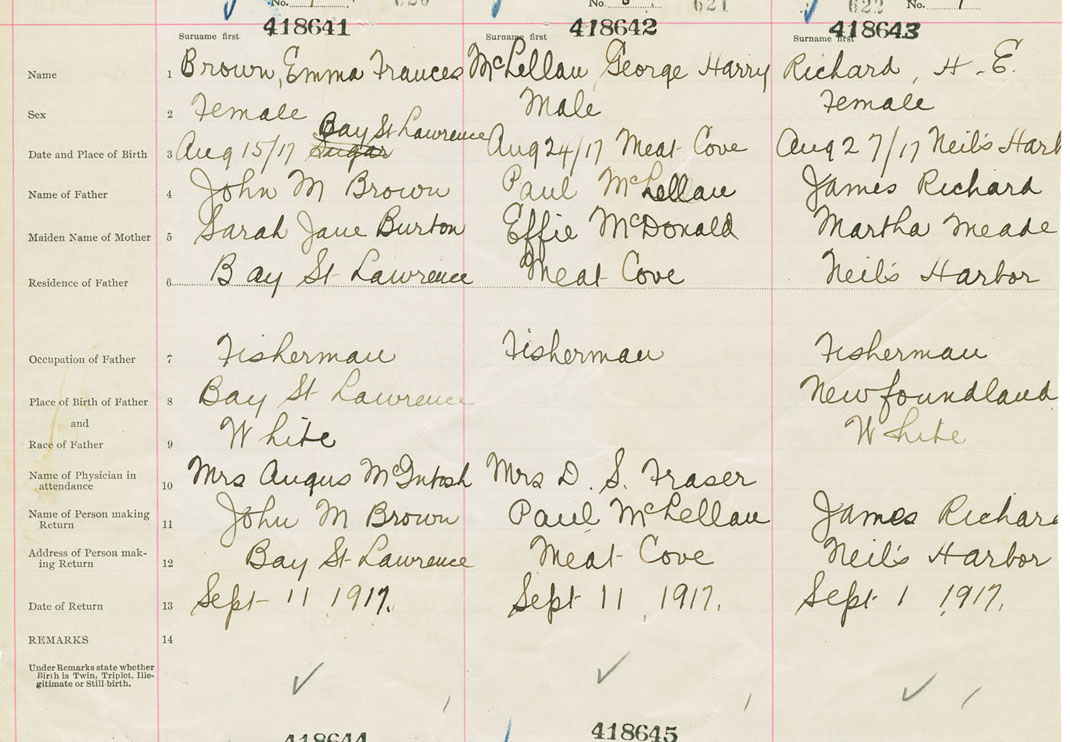 No. No. 621 622 No.
418641 418642 418643
Surname first Surname first Surname first
Name 1 Brown, Emma Frances McLellan George Harry Richard, H. E.
Sex 2 Female Male Female
Bay St Lawrence
Date and Place of Birth 3 Aug 15/17 Sugar Aug 24/17 Meat Cove Aug 27/17 Neil's Harb
Name of Father 4 John M Brown Paul McLellan James Richard
Maiden Name of Mother 5 Sarah Jane Burton Effie McDonald Martha Meade
Residence of Father 6 Bay St Lawrence Meat Cove Neil's Harbor
Occupation of Father 7 Fisherman Fisherman Fisherman
Place of Birth of Father 8 Bay St Lawrence Newfoundland
and
Race of Father 9 White White
Name of Physician in
attendance 10 Mrs Angus McIntosh Mrs D. S. Fraser
Name of Person making
Return 11 John M Brown Paul McLellan James Richard
Address of Person mak-
ing Return 12 Bay St Lawrence Meat Cove Neil's Harbor
Date of Return 13 Sept 11 1917. Sept 11 1917. Sept 1 1917.
REMARKS 14
Under Remarks state whether
Birth is Twin, Triplet, Ille-
gitimate or Still-birth.
418644 418645